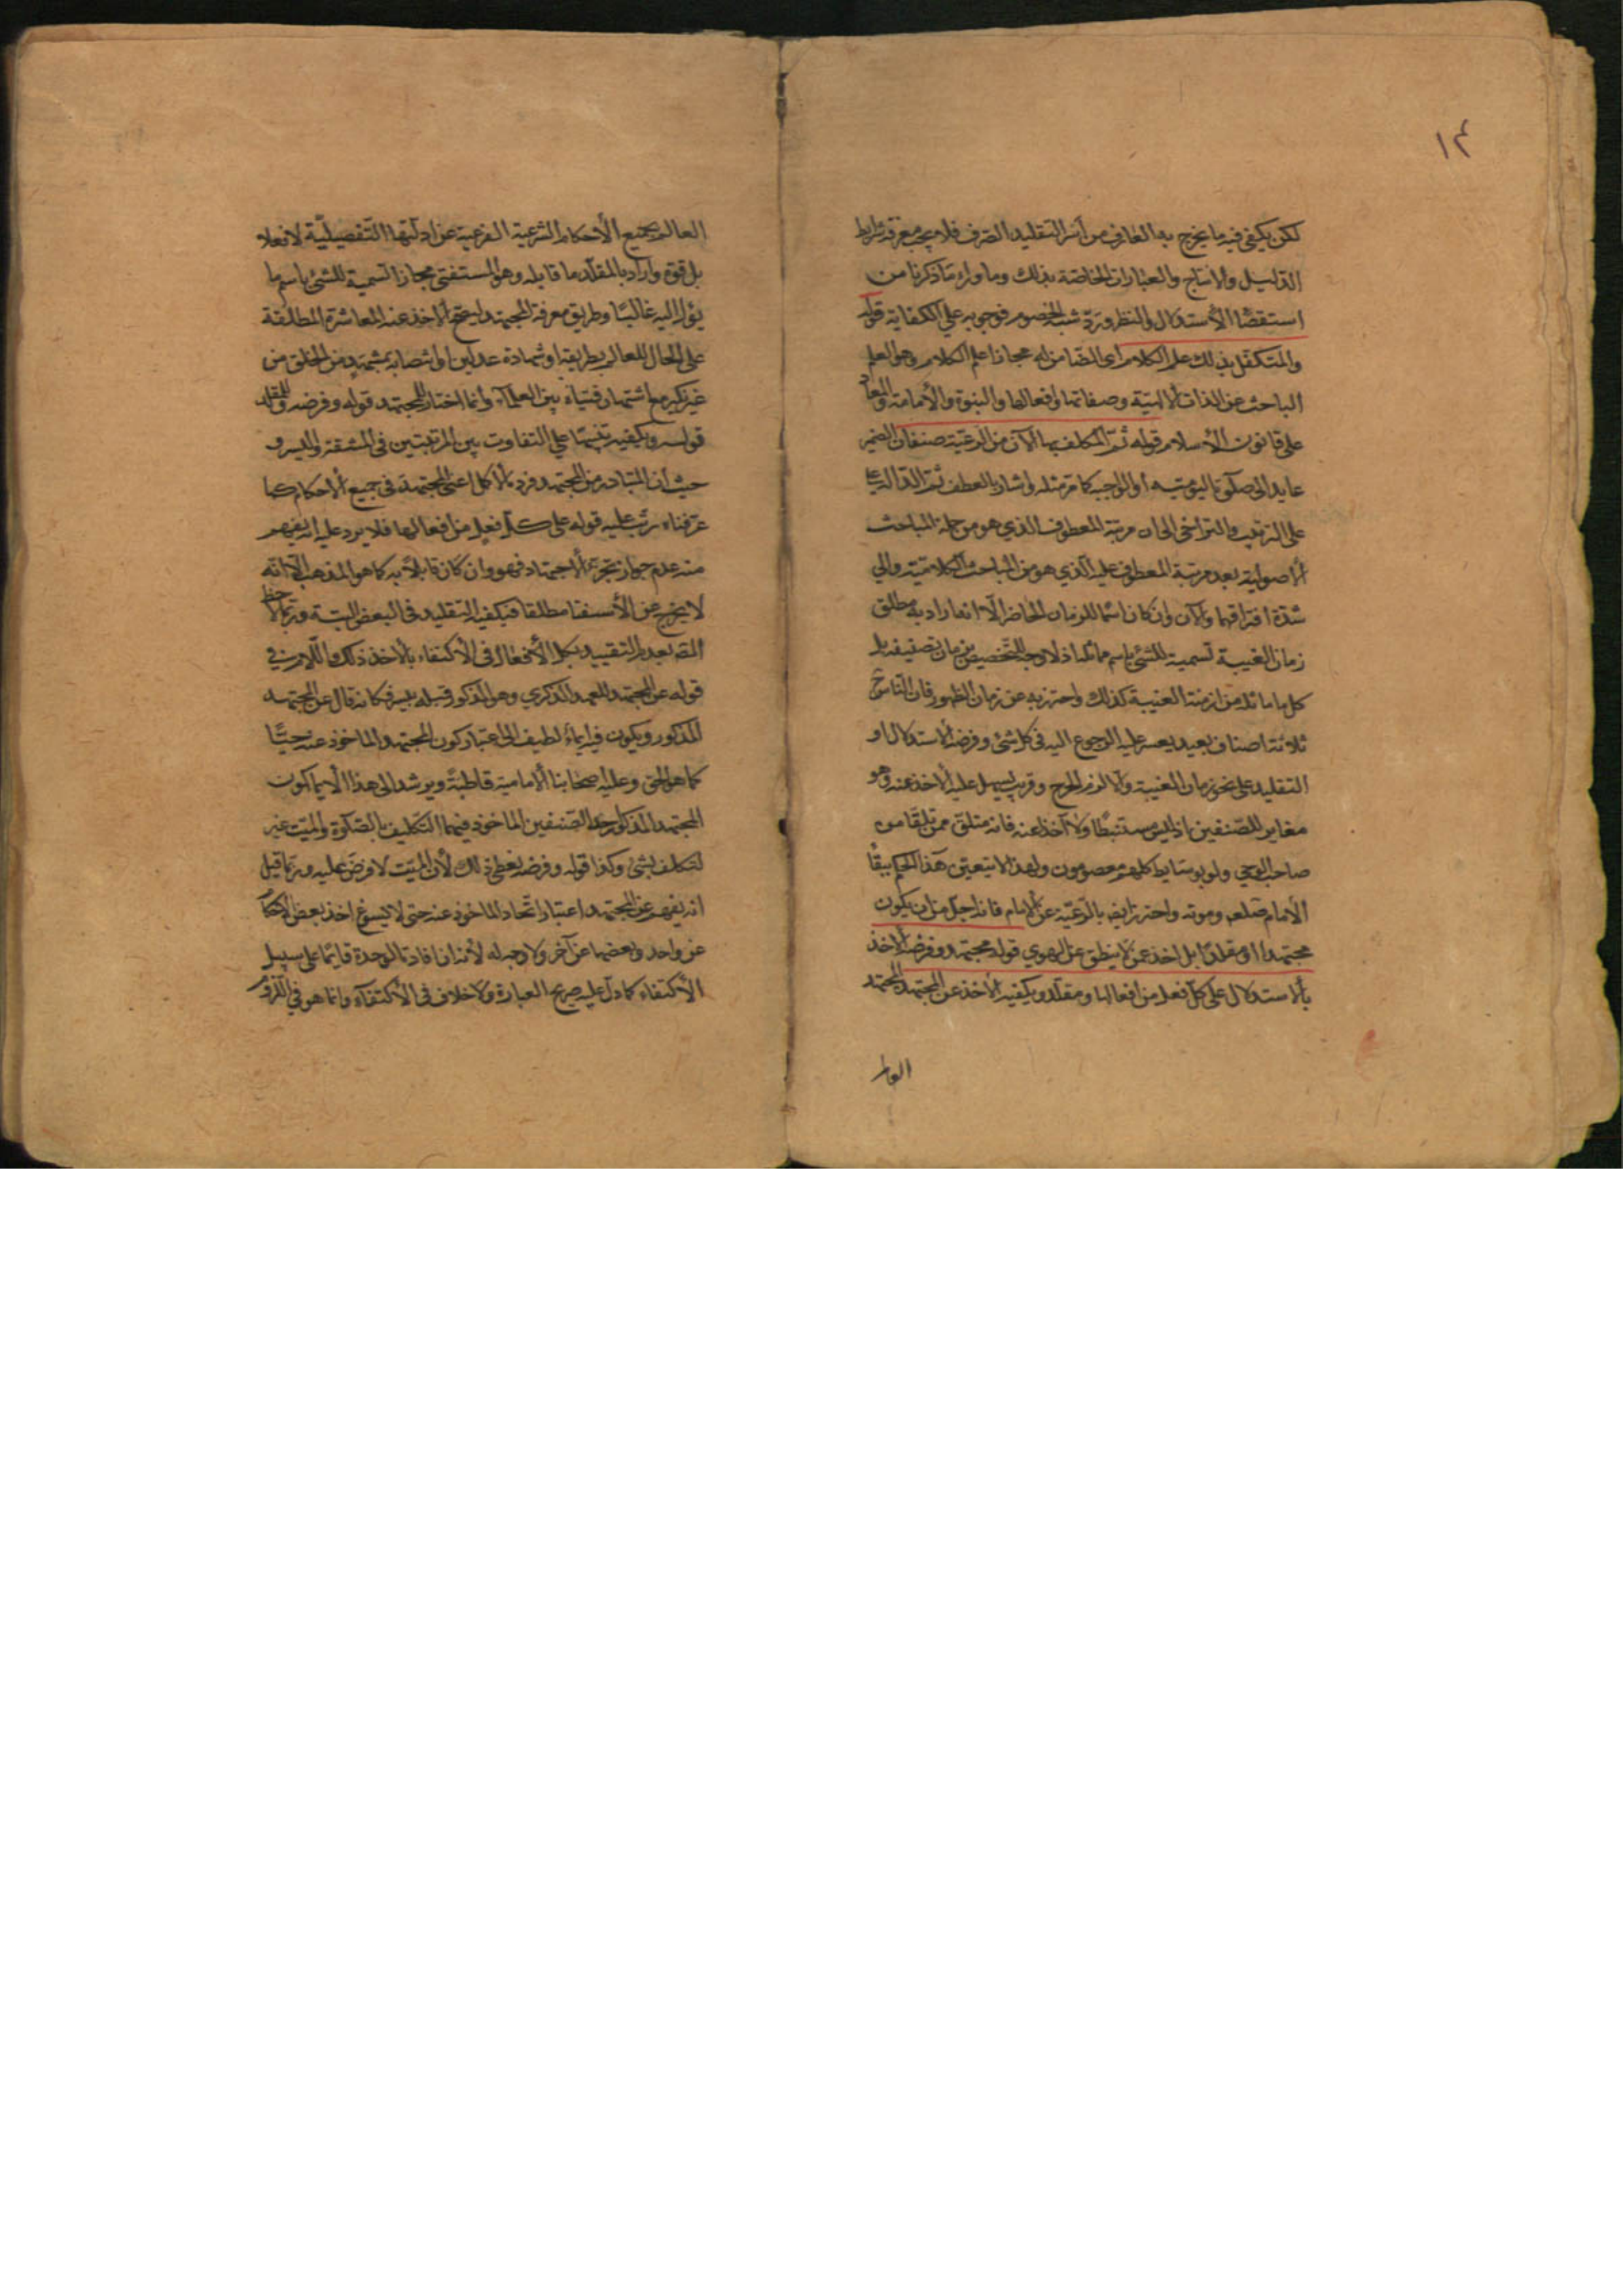 ١٤
لكن يكفي فيه ما يخرج به العارف من أسر التقليد الصرف فلا يجب معرفة شرايط
الدليل والانتاج والعبارات الخاصة بذلك وما وراء ما ذكرنا من
استقصاء الأستدلال والنظر ورد شبه الخصوم فوجوبه على الكفاية قوله
والمتكفل بذلك علم الكلام اى الضامن له مجازا علم الكلام وهو العلم
الباحث عن الذات الالهية وصفاتها وافعالها والنبوة والأمامة والمعاد
على قانون الأسلام قوله ثم المكلف بها الآن من الرعية صنفان الضمير
عايد الى صلوة اليومية أو الواجبة كما مر مثله واشار بالعطف بثم الدالة
على الترتيب والتراخي الى ان مرتبة المعطوف الذي هو من جملة المباحث
الأصولية بعد مرتبة المعطوف عليه الذي هو من المباحث الكلامية والى
شدة افتراقهما والآن وان كان اسما للزمان الحاضر الا انه اراد به مطلق
زمان الغيبة تسمية للشئ باسم مماثله اذ لا وجه للتخصيص بزمان تصنيفه بل
كل ما ماثله من ازمنة الغيبة كذلك واحترز به عن زمان الظهور فان الناس ح
ثلاثة اصناف بعيد يعسر عليه الرجوع اليه فى كل شئ وفرضه الاستدلال او
التقليد على نحو زمان الغيبة والا لزم الحرج وقريب يسهل عليه الأخذ عنه وهو
مغاير للصنفين اذ ليس مستنبطا ولا آخذا عنه فانه متلق ممن تلقا من
صاحب الوحي ولو بوسايط كلهم معصومون ولهذا لا يتعين هذا الحكم ببقاء
الأمام صلعم وموته واحترز ايضا بالرعية عن الامام فانه اجل من ان يكون
مجتهدا او مقلدا بل اخذ عمن لا ينطق عن الهوى قوله مجتهد وفرضه الاخذ
بالاستدلال على كل فعل من افعالها ومقلد ويكفيه الأخذ عن المجتهد المجتهد
العالم
العالم بجميع الأحكام الشرعية الفرعية عن ادلتها التفصيلية لا فعلا
بل قوة واراد بالمقلد ما قابله وهو المستفتي مجازا تسمية للشئ باسم ما
يؤل اليه غالبا وطريق معرفة المجتهد ليصح الاخذ عنه المعاشرة المطلقة
على الحال للعالم بطريقه او شهادة عدلين او انتصابه بمشهد من الخلق من
غير نكير مع اشتهار فتياه بين العلماء وانما اختار للمجتهد قوله وفرضه وللمقلد
قوله ويكفيه تنبيها على التفاوت بين المرتبتين فى المشقة واليسر و
حيث ان المتبادر من المجتهد فرده الأكمل اعنى المجتهد فى جميع الأحكام كما
عرفناه رتب عليه قوله على كل فعل من افعالها فلا يرد عليه انه يفهم
منه عدم جواز تجزى الاجتهاد فهو وان كان قابلا به كما هو المذهب الا انه
لا يخرج عن الأستفتا مطلقا فيكفيه التقليد فى البعض البتة وربما لاحظ
المصـ بعدم التقييد بكل الأفعال فى الأكتفاء بالأخذ ذلك واللام في
قوله عن المجتهد للعهد الذكري وهو المذكور قبله بيسير فكانه قال عن المجتهد
المذكور ويكون فيه ايماء لطيف الى اعتبار كون المجتهد الماخوذ عنه حيا
كما هو الحق وعليه اصحابنا الامامية قاطبة ويرشد الى هذا الايما كون
المجتهد المذكور احد الصنفين الماخوذ فيهما التكليف بالصلوة والميت غير
مكلف بشئ وكذا قوله وفرضه يعطى ذلك لأن الميت لا فرض عليه وربما قيل
انه يفهم عن المجتهد اعتبار اتحاد الماخوذ عنه حتى لا يسوغ اخذ بعض الاحكام
عن واحد وبعضها عن آخر ولا وجه له لأنه ان افادتا الوحدة فانما على سبيل
الأكتفاء كما دل عليه صريح العبارة ولا خلاف فى الأكتفاء وانما هو في اللزوم